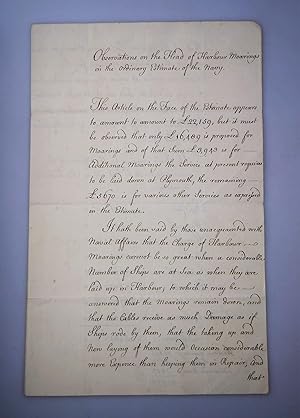 Observations on the Head of Harbour Moorings
in the Ordinary Estimate of the Navy.
This Article on the Face of the Estimate appears
to amount to amount to £22,159, but it must
be observed that only £16,489 is proposed for
Moorings and of that Sum £3,943 is for
Additional Moorings the Service at present requires
to be laid down at Plymouth, the remaining
£5670 is for various other Services as expressed
in the Estimate.
It hath been said by those unacquainted with
Naval Affairs that the Charge of Harbour
Moorings cannot be so great when a considerable
Number of Ships are at Sea as when they are
laid up in Harbour, to which it may be
answered that the Moorings remain down, and
that the Cables receive as much Damage as if
Ships rode by them, that the taking up and
New laying of them would Occasion considerable
more Expence than keeping them in Repair, and
that